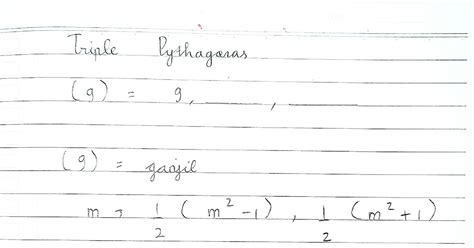 Triple Pythagoras
(9) = 9, ____, ____
(9) = ganjil
m → 1/2 (m² - 1), 1/2 (m² + 1)